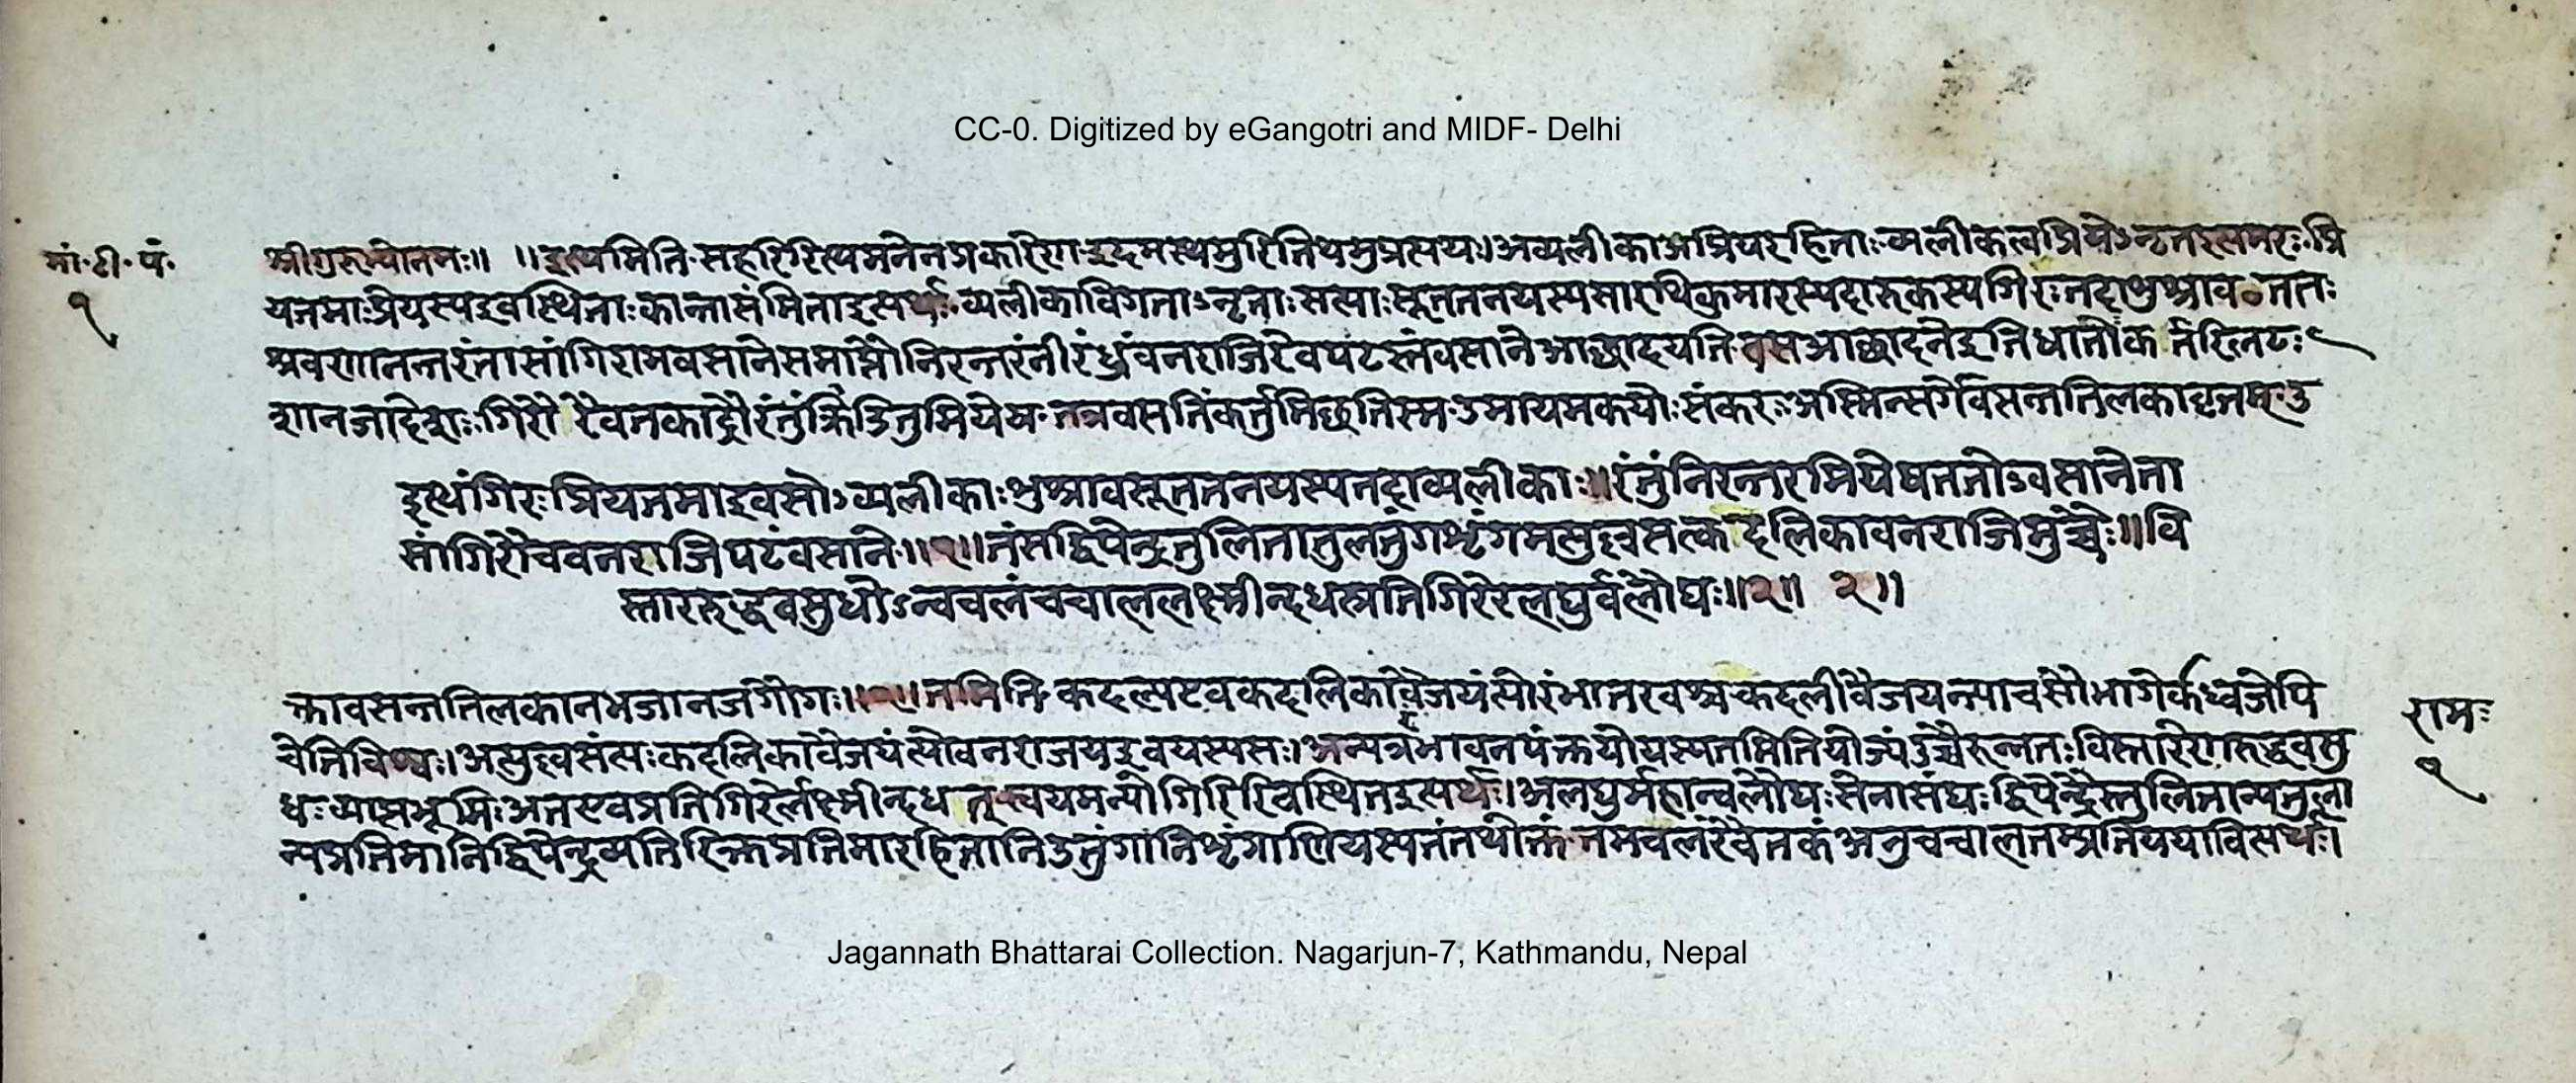 CC-0. Digitized by eGangotri and MIDF- Delhi
मा॰टी॰पं॰
१
श्रीगुरुभ्योनमः॥ ॥इत्थमिति॰सहरिरित्थमनेनप्रकारेणइदमस्थमुरितिथमुप्रत्ययः।अव्यलीकाअप्रियरहिताः॰व्यलीकंत्वप्रियेऽनृतइत्यमरः॰प्रि
यतमाःप्रेयस्यइवस्थिताःकान्तासंमिताइत्यर्थः॰व्यलीकाविगताऽनृताःसत्याःसूततनयस्यसारथिकुमारस्यदारुकस्यगिरःतदाशुश्राव॰ततः
श्रवणानन्तरंतासांगिरामवसानेसमाप्तौनिरन्तरंनीरंध्रंवनराजिरेवपटस्तंवसानेआछादयति॰वसआछादनेइतिधातोःकर्तरिलटः
शानजादेशः॰गिरौरैवतकाद्रौरंतुंक्रीडितुमियेष॰तत्रवसतिंकर्तुमिछतिस्म॰उमायमकयोःसंकरः॰अस्मिन्सर्गेवसन्ततिलकावृत्तम्॰उ
इत्थंगिरःप्रियतमाइवसोऽव्यलीकाःशुश्रावसूततनयस्यतदाव्यलीकाः॥रंतुंनिरन्तरमियेषततोऽवसानेता
सांगिरौचवनराजिपटंवसाने॥१॥तंसद्विपेन्द्रतुलितातुलतुंगशृंगमभ्युल्लसत्कदलिकावनराजिमुच्चैः॥वि
स्ताररुद्धवसुधोऽन्वचलंचचाललक्ष्मीन्दधत्प्रतिगिरेरलघुर्बलौघः॥२॥ २॥
क्तावसन्ततिलकातभजाजगौगः॥१॥तमिति॰कदल्येवकदलिकावैजयंत्योरंभातरवश्चकदलीवैजयन्त्याचरंभागेर्कध्वजेपि
चेतिविश्वः।अभ्युल्लसंत्यःकदलिकावैजयंत्योवनराजयइवयस्यसः।अन्यत्ररंभावनपंक्तयोयस्यतमितियोज्यंउच्चैरुन्नतः॰विस्तारेणरुद्धवसु
धःव्याप्तभूमिःअतएवप्रतिगिरेर्लक्ष्मीन्दधत्॰स्वयमन्योगिरिरिवस्थितइत्यर्थः।अलघुर्महान्बलौघःसेनासंघःद्विपेन्द्रैस्तुलितान्यतुला
न्यप्रतिमानिद्विपेन्द्रव्यतिरिक्तप्रतिमारहितानितुंगानिशृंगाणियस्यतंतथोक्तंतमचलंरैवतकंअनुचचालतम्प्रतिययावित्यर्थः।
रामः
१
Jagannath Bhattarai Collection. Nagarjun-7, Kathmandu, Nepal